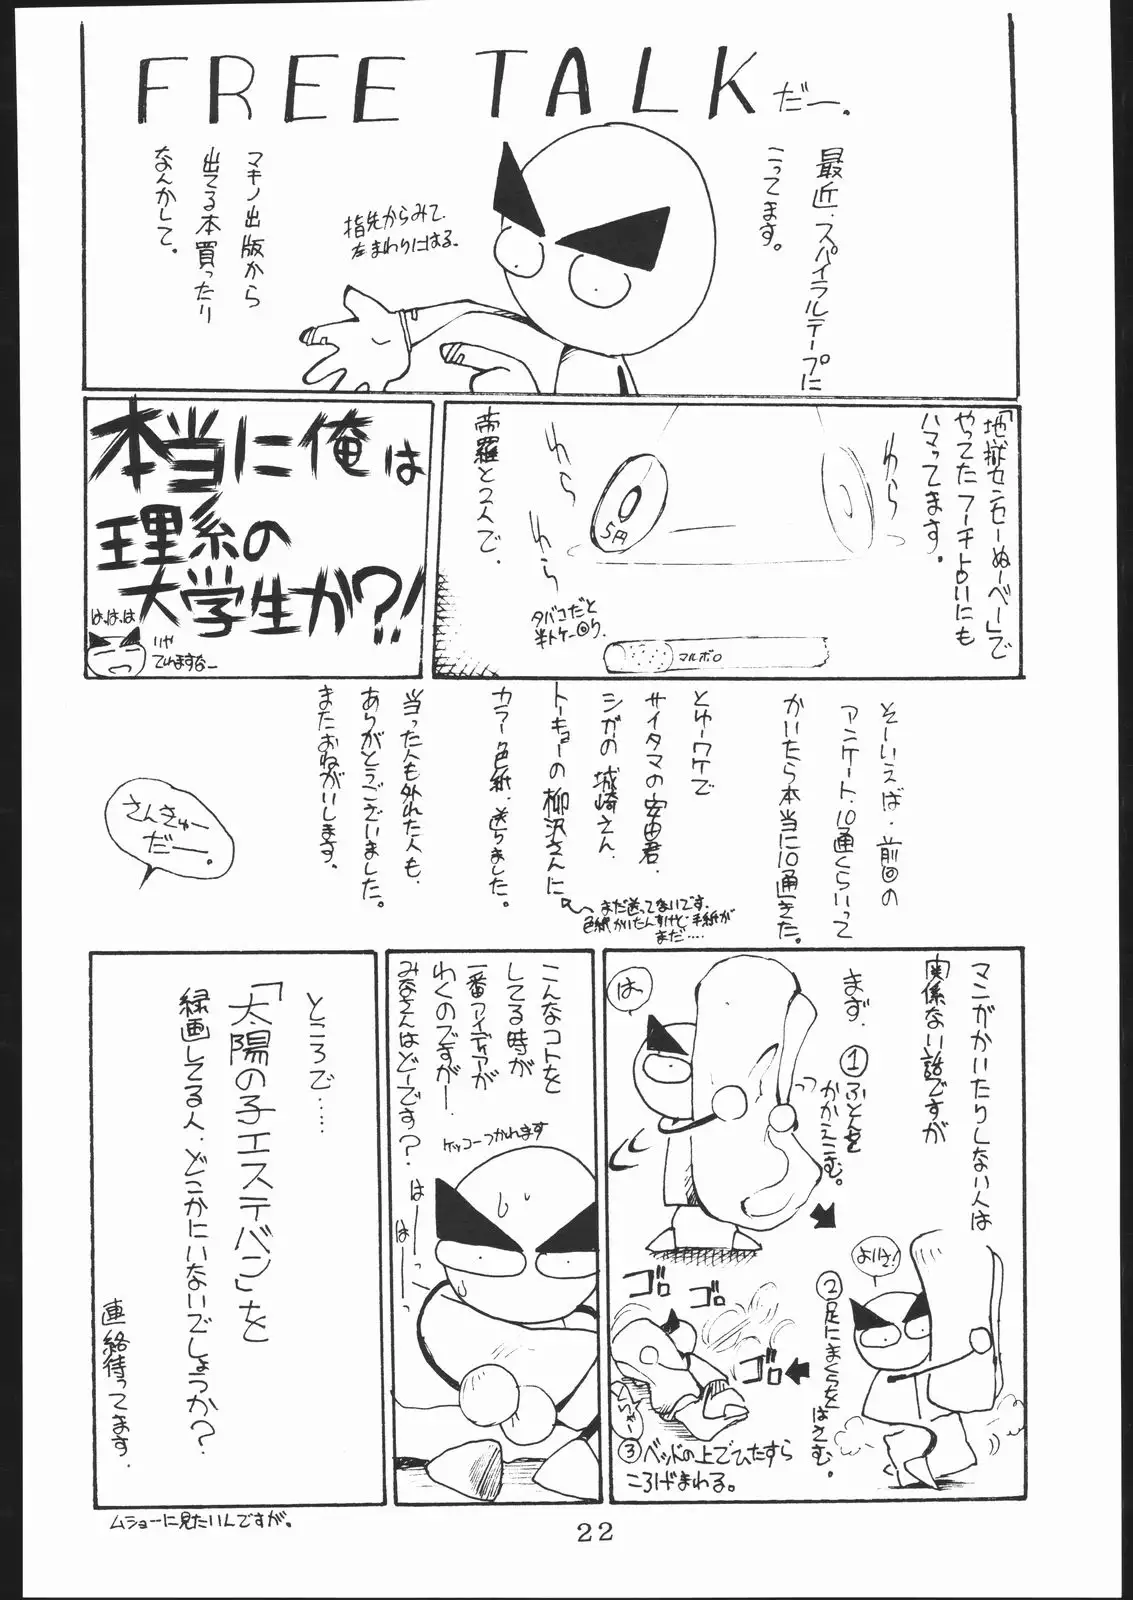 FREE TALKだー。
最近、スパイラルテープに
こってます。
指先からみて、
左まわりにはる。
マキノ出版から
出てる本買ったり
なんかして。
「地獄センセーぬーべー」で
やってたフーチ占いにも
ハマってます。
わら
わら
わら
5円
帝羅と2人で。
タバコだと
マルボロ
本当に俺は
理系の
大学生か?!
は、は、は
そーいえば、前回の
アンケート、10通くらいって
かいたら本当に10通きた。
とゆーワケで
サイタマの安田君、
シガの城崎さん、
トーキョーの柳沢さんに
カラー色紙、送りました。
まだ送ってないです。
色紙かいたんすけど手紙が
まだ.....
当った人も外れた人も、
ありがとうございました。
またおねがいします。
さんきゅー
だー。
マンガかいたりしない人は
関係ない話ですが
まず、
①ふとんを
かかえこむ。
は
②足にまくらを
はさむ。
よいしょ!
③ベッドの上でひたすら
ころげまわる。
ゴロ
ゴロ
ゴロ
こんなコトを
してる時が
一番アイディアが
わくのですがー、
みなさんはどーです?
ケッコーつかれます
はーーっ
はーーっ
ところで……
「太陽の子エステバン」を
録画してる人、どこかにいないでしょうか?
連絡待ってます。
ムショーに見たいんですが。
22